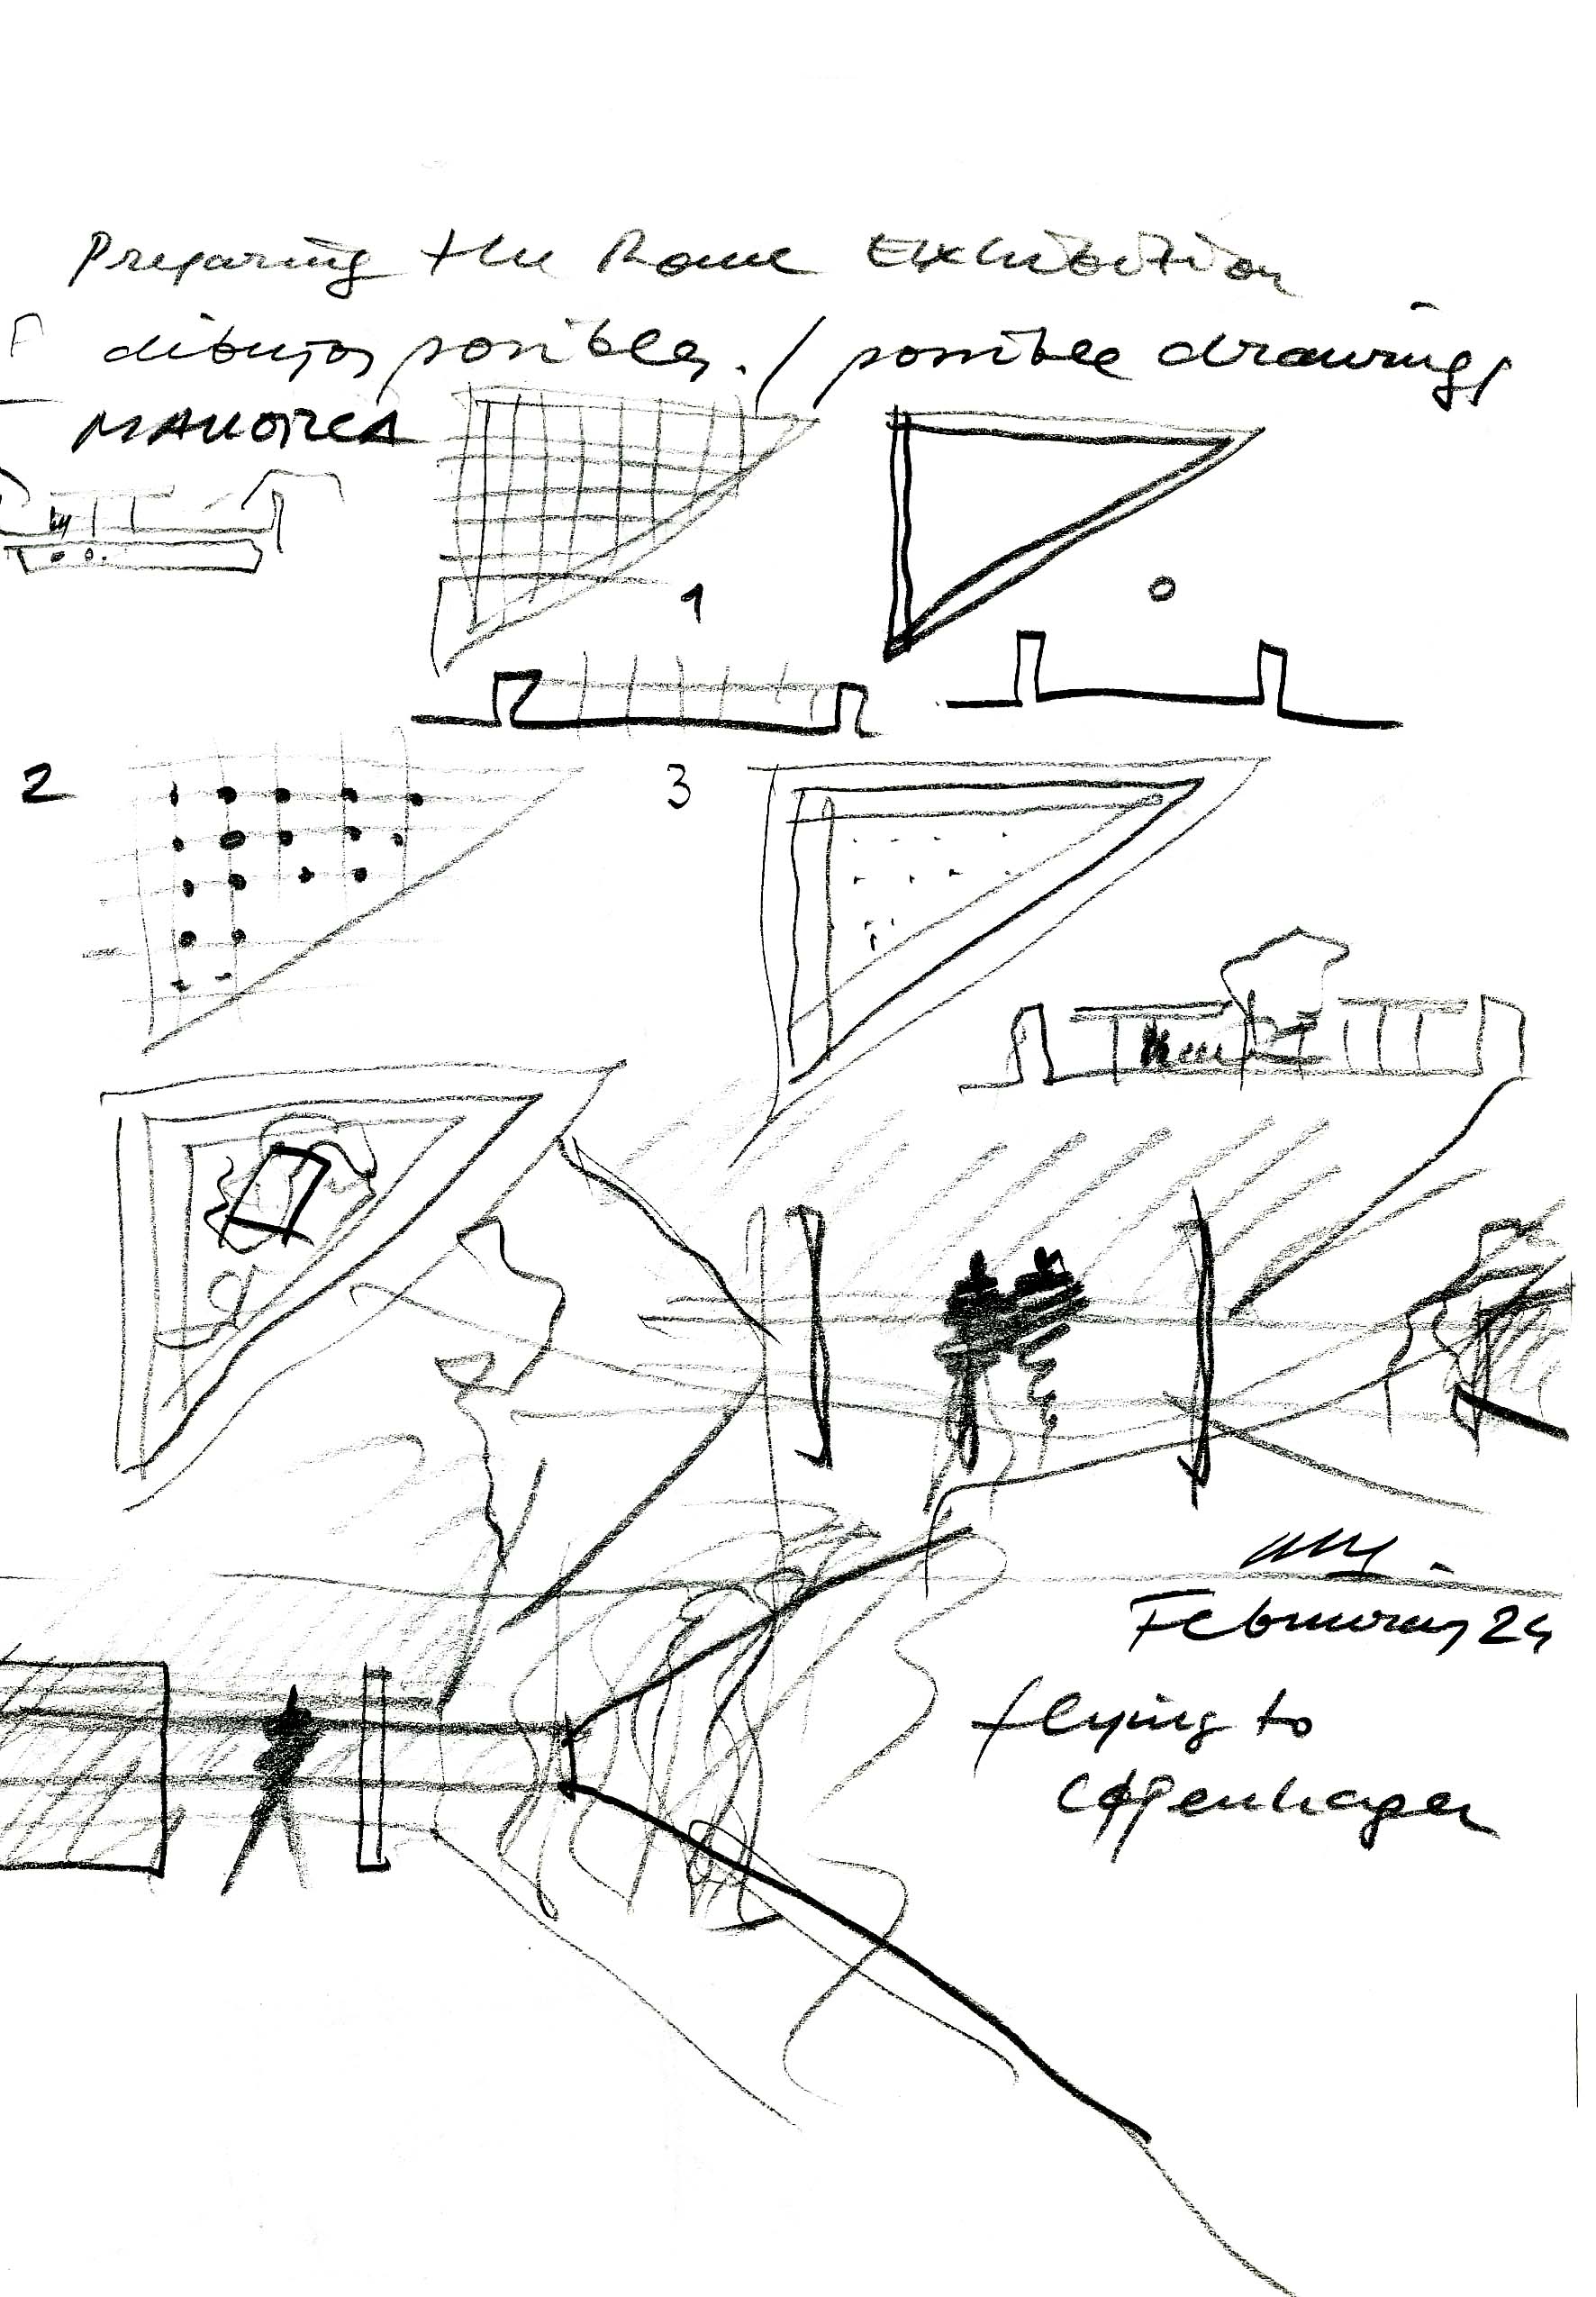 Preparing the Rome Exhibition
dibujos posibles. / possible drawings
MALLORCA
1
2
3
February 24
flying to
Copenhagen